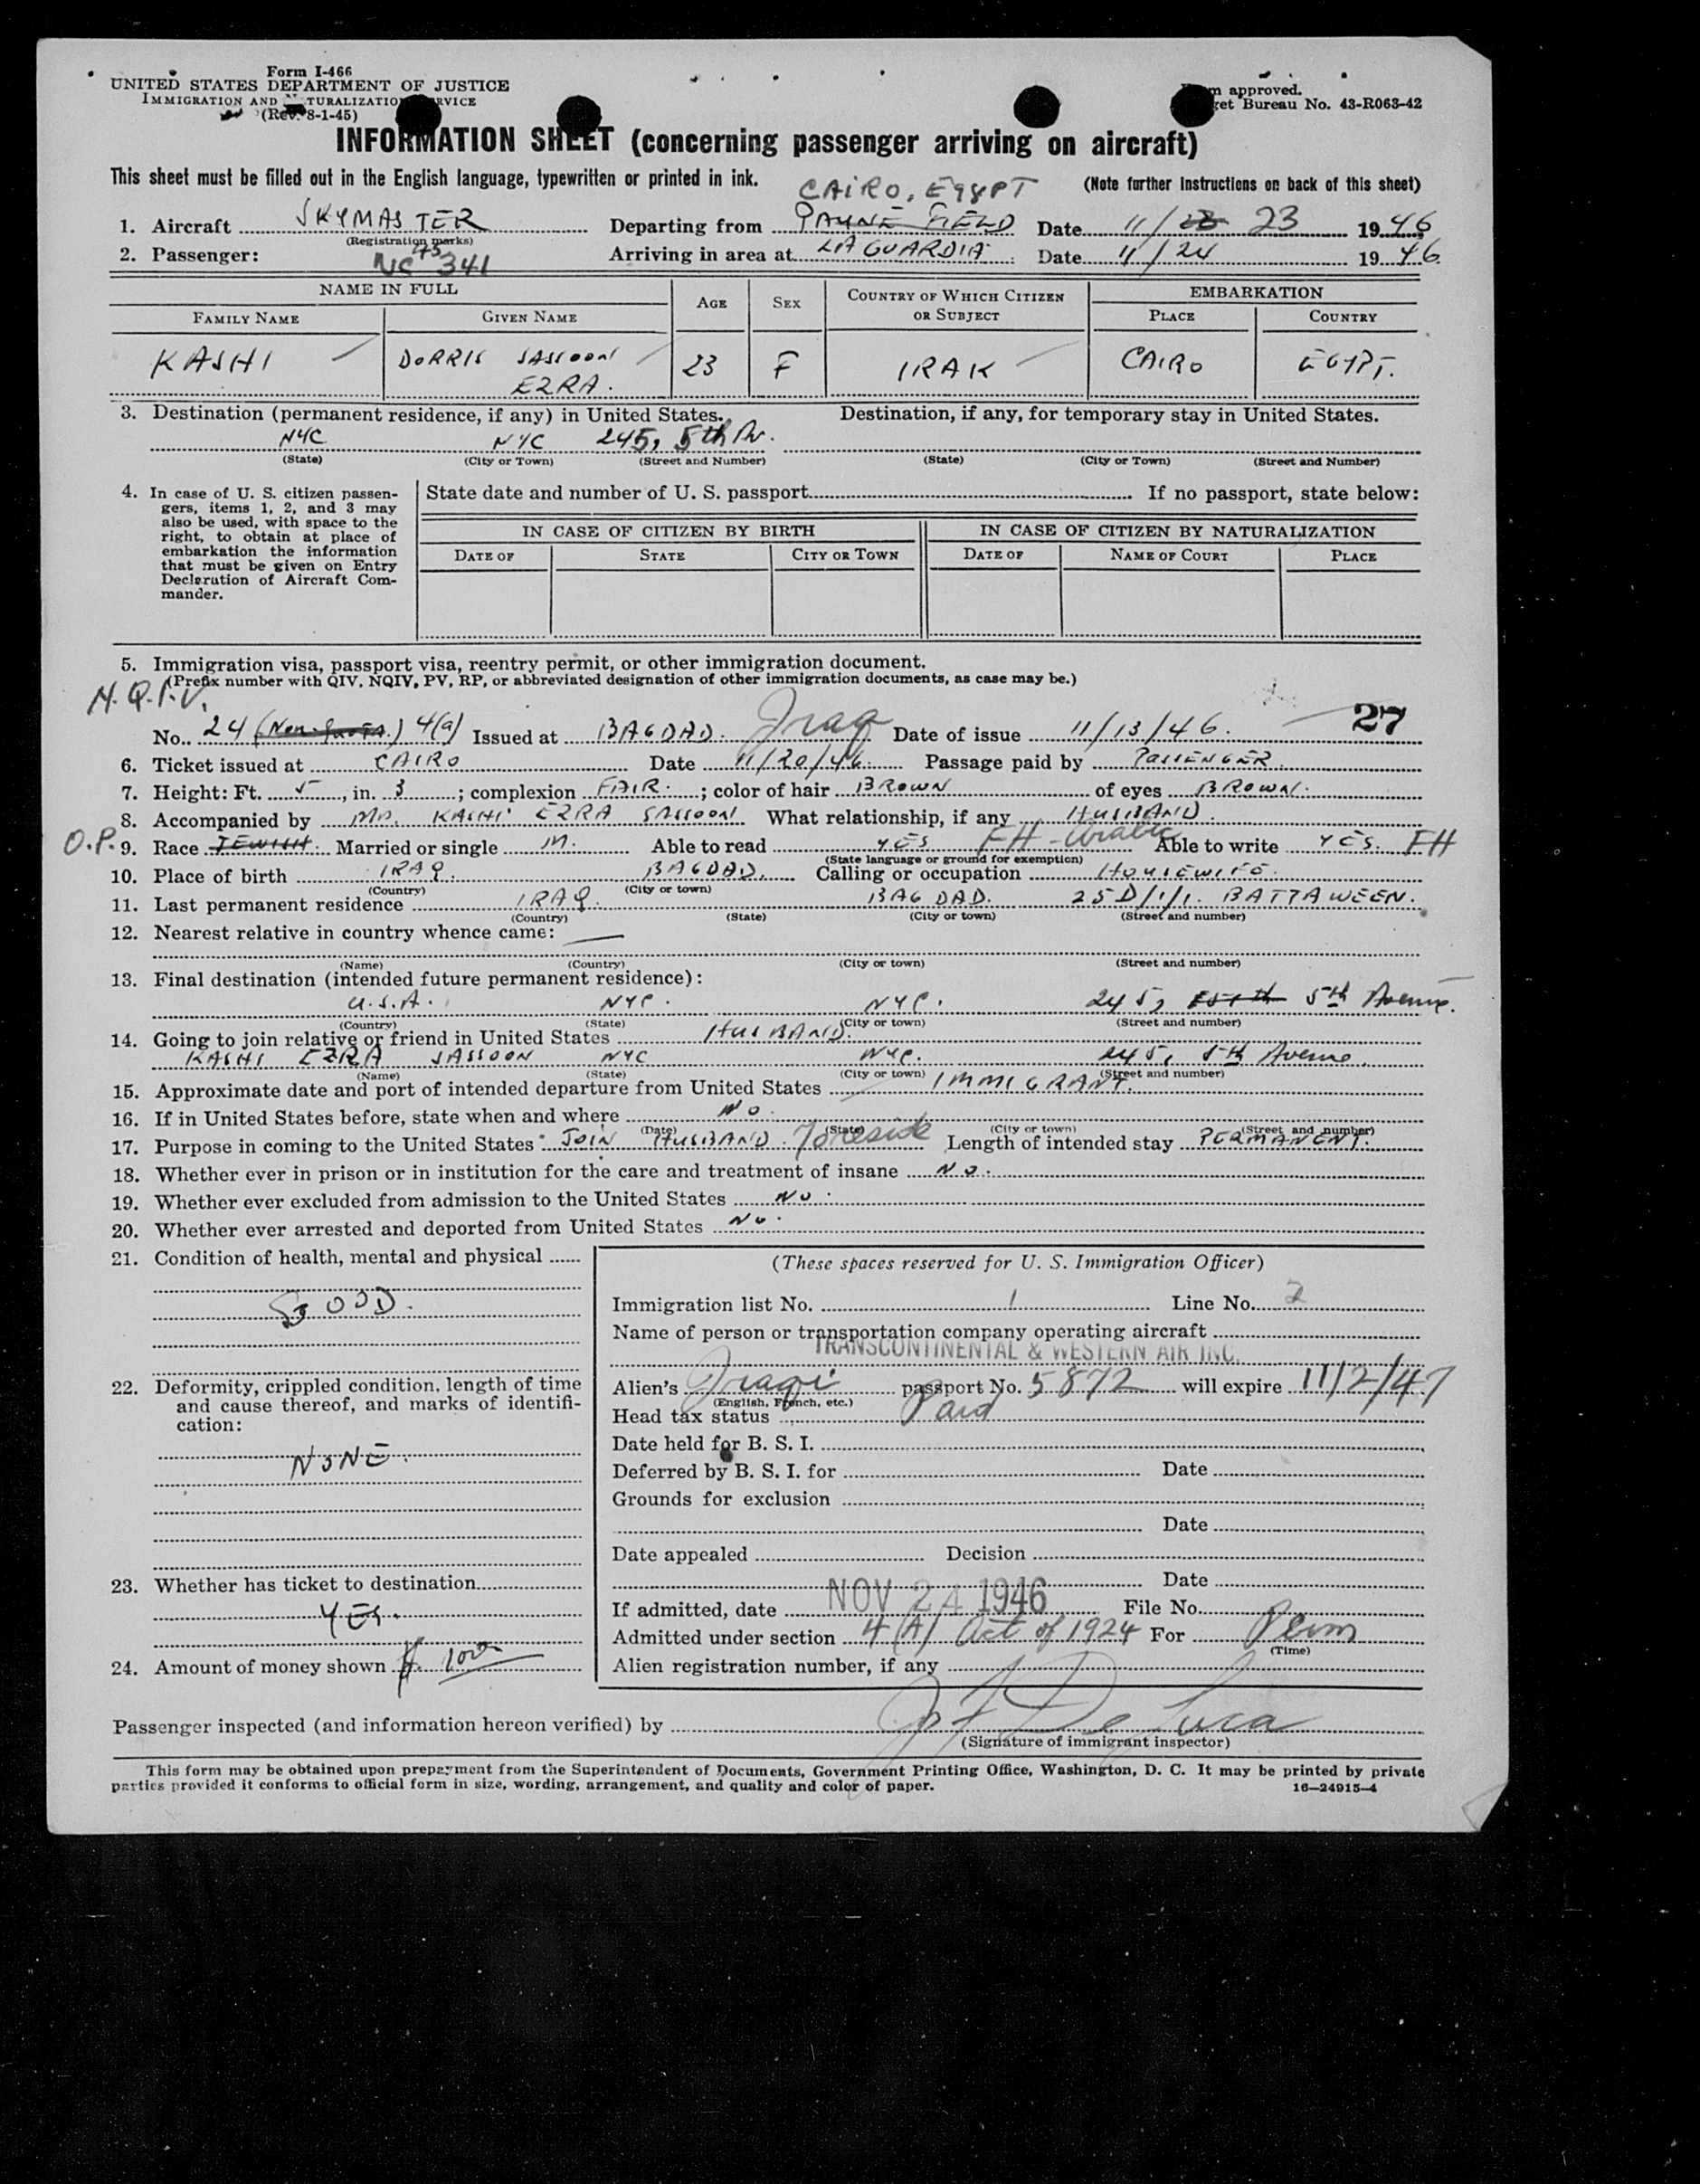 Form I-466
UNITED STATES DEPARTMENT OF JUSTICE
IMMIGRATION AND NATURALIZATION SERVICE
(Rev. 8-1-45)
Form approved.
Budget Bureau No. 43-R063-42
INFORMATION SHEET (concerning passenger arriving on aircraft)
This sheet must be filled out in the English language, typewritten or printed in ink.
(Note further instructions on back of this sheet)
CAIRO, EGYPT
1. Aircraft SKYMASTER Departing from PAYNE FIELD Date 11/23 23 1946
(Registration marks)
2. Passenger: NC 45341 Arriving in area at LA GUARDIA Date 11/24 1946
NAME IN FULL AGE SEX COUNTRY OF WHICH CITIZEN OR SUBJECT EMBARKATION
FAMILY NAME GIVEN NAME PLACE COUNTRY
KASHI DORRIS SASSOON EZRA. 23 F IRAK CAIRO EGYPT.
3. Destination (permanent residence, if any) in United States. Destination, if any, for temporary stay in United States.
NYC NYC 245, 5th Av.
(State) (City or Town) (Street and Number) (State) (City or Town) (Street and Number)
4. In case of U. S. citizen passengers, items 1, 2, and 3 may also be used, with space to the right, to obtain at place of embarkation the information that must be given on Entry Declaration of Aircraft Commander.
State date and number of U. S. passport If no passport, state below:
IN CASE OF CITIZEN BY BIRTH IN CASE OF CITIZEN BY NATURALIZATION
DATE OF STATE CITY OR TOWN DATE OF NAME OF COURT PLACE
5. Immigration visa, passport visa, reentry permit, or other immigration document.
(Prefix number with QIV, NQIV, PV, RP, or abbreviated designation of other immigration documents, as case may be.)
N.Q.I.V.
27
No. 24 (Non-quota.) 4(a) Issued at BAGDAD. Iraq Date of issue 11/13/46.
6. Ticket issued at CAIRO Date 11/20/46. Passage paid by PASSENGER.
7. Height: Ft. 5, in. 3; complexion FAIR.; color of hair BROWN of eyes BROWN.
8. Accompanied by MR. KASHI EZRA SASSOON What relationship, if any HUSBAND.
O.P. 9. Race JEWISH. Married or single M. Able to read YES FH - Arabic Able to write YES. FH
(State language or ground for exemption)
10. Place of birth IRAQ. BAGDAD. Calling or occupation HOUSEWIFE.
(Country) (City or town)
11. Last permanent residence IRAQ. BAGDAD. 25D/1/1. BATTAWEEN.
(Country) (State) (City or town) (Street and number)
12. Nearest relative in country whence came: —
(Name) (Country) (City or town) (Street and number)
13. Final destination (intended future permanent residence):
U.S.A. NYC. NYC. 245, 5th Avenue.
(Country) (State) (City or town) (Street and number)
14. Going to join relative or friend in United States HUSBAND.
KASHI EZRA SASSOON NYC NYC. 245, 5th Avenue.
(Name) (State) (City or town) (Street and number)
15. Approximate date and port of intended departure from United States IMMIGRANT.
16. If in United States before, state when and where NO.
(Date) (State) (City or town) (Street and number)
17. Purpose in coming to the United States JOIN HUSBAND. To reside Length of intended stay PERMANENT.
18. Whether ever in prison or in institution for the care and treatment of insane NO.
19. Whether ever excluded from admission to the United States NO.
20. Whether ever arrested and deported from United States NO.
21. Condition of health, mental and physical
GOOD.
22. Deformity, crippled condition, length of time and cause thereof, and marks of identification:
NONE.
23. Whether has ticket to destination
YES.
24. Amount of money shown $ 100
(These spaces reserved for U. S. Immigration Officer)
Immigration list No. 1 Line No. 2
Name of person or transportation company operating aircraft
TRANSCONTINENTAL & WESTERN AIR INC.
Alien's Iraqi passport No. 5872 will expire 11/2/47
(English, French, etc.)
Head tax status Paid
Date held for B. S. I.
Deferred by B. S. I. for Date
Grounds for exclusion
Date
Date appealed Decision
Date
If admitted, date NOV 24 1946 File No.
Admitted under section 4 (A) Act of 1924 For Perm
(Time)
Alien registration number, if any
Passenger inspected (and information hereon verified) by De Luca
(Signature of immigrant inspector)
This form may be obtained upon prepayment from the Superintendent of Documents, Government Printing Office, Washington, D. C. It may be printed by private
parties provided it conforms to official form in size, wording, arrangement, and quality and color of paper.
16—24915-4